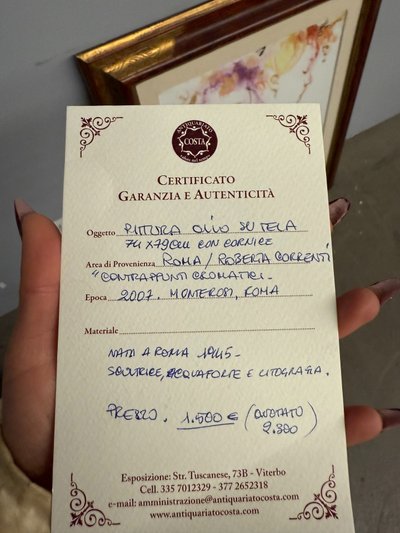 ANTIQUARIATO
COSTA
CERTIFICATO
GARANZIA E AUTENTICITÀ
Oggetto PITTURA OLIO SU TELA
74 X 79 CM CON CORNICE
Area di Provenienza ROMA / ROBERTA CORRENTI
"CONTRAPPUNTI CROMATICI.
Epoca 2007. MONTEROSI, ROMA
Materiale
NATA A ROMA 1945-
SCULTRICE, ACQUAFORTE E LITOGRAFIA.
PREZZO. 1.500 € (QUOTATO
2.300)
Esposizione: Str. Tuscanese, 73B - Viterbo
Cell. 335 7012329 - 377 2652318
e-mail: amministrazione@antiquariatocosta.com
www.antiquariatocosta.com